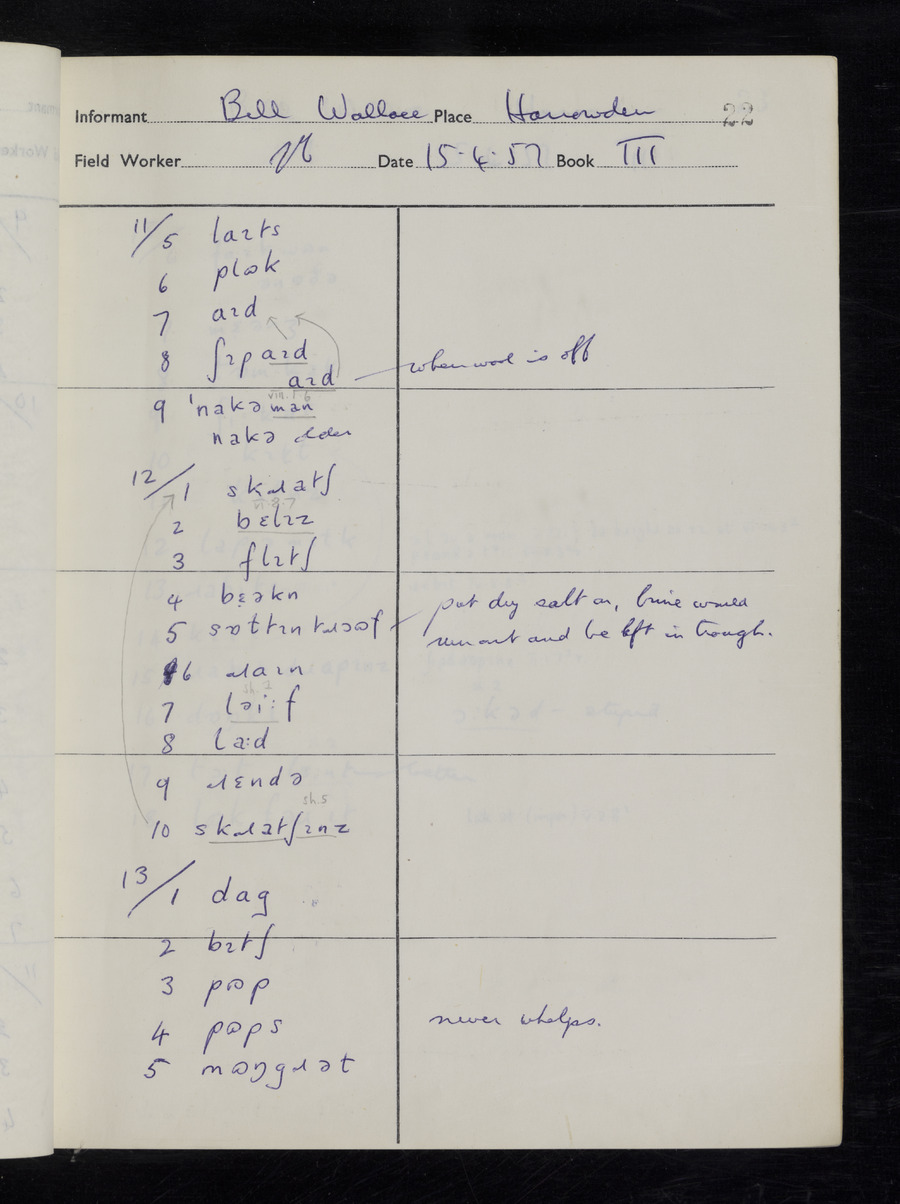 Informant Bill Wallace Place Harrowden 22
Field Worker Date 15.4.57 Book III
11/5 laɪts
6 plɷk
7 aɪd
8 ʃɪp aɪd
aɪd when wool is off
9 ˈnakə man
nakə
12/1 skɹatʃ
2 bɛlɪz
3 flɪtʃ
4 bɛ̣əkn
5 sɒttɪn tɹɔɷf put dry salt on, brine would
run out and be left in trough.
6 ɹaɪn
sh.7
7 ləi:f
8 la:d
9 ɹɛndə
sh.5
10 skɹatʃɪnz
13/1 dag
2 bɪtʃ
3 pɷp
4 pɷps never whelps.
5 mɷŋgɹət